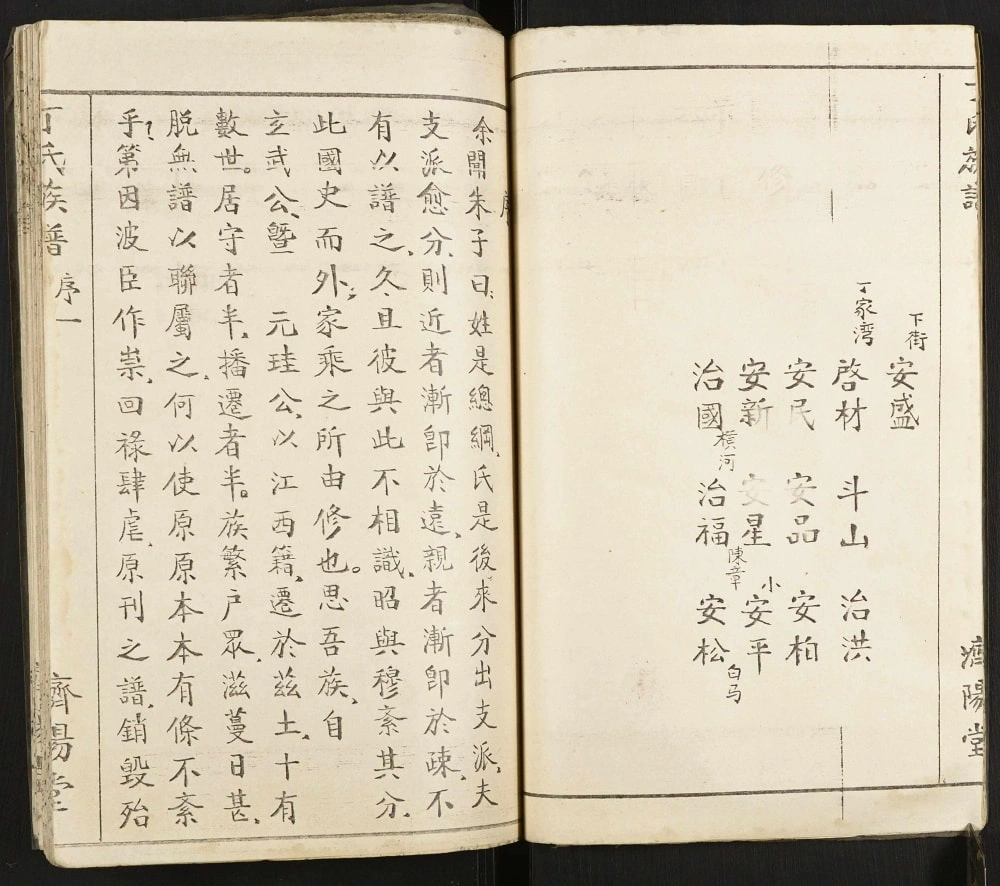 丁氏族譜 濟陽堂
下街
安盛
丁家湾
啓材 斗山 治洪
安民 安品 安柏
安新 安星 小安平
治國 橫河 治福 陳章 安松 白马
序
余聞朱子曰姓是總綱、氏是後來分出支派、夫
支派愈分、則近者漸卽於遠、親者漸卽於疎、不
有以譜之、久、且彼與此不相識、昭與穆紊其分、
此國史而外、家乘之所由修也。思吾族、自
玄武公、曁 元珪公、以江西籍、遷於茲土、十有
數世。居守者半、播遷者半。族繁户眾、滋蔓日甚、
脱無譜以聯屬之、何以使原原本本有條不紊
乎、第因波臣作祟、回祿肆虐、原刊之譜、銷毀殆
丁氏族譜 序一 濟陽堂